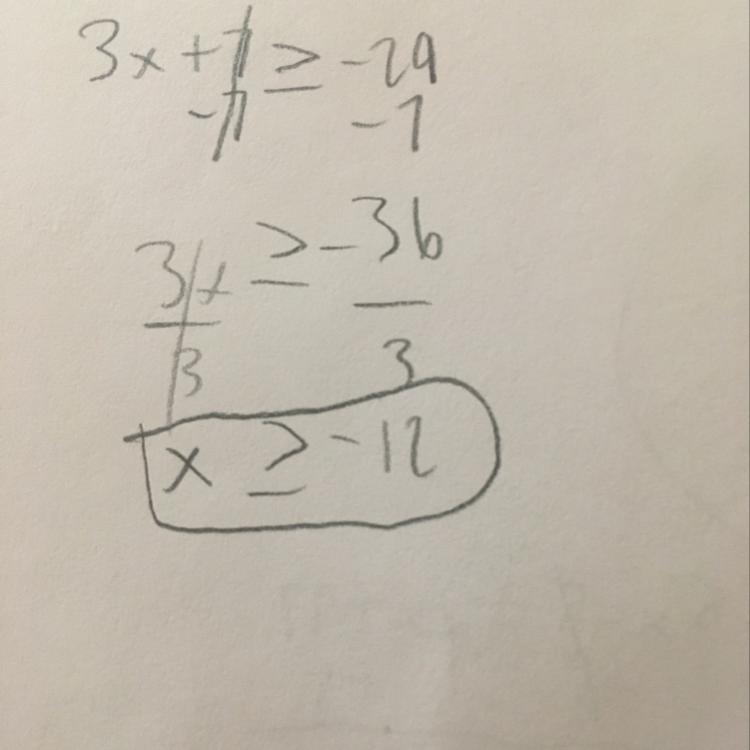 3x + 7 ≥ -29
-7 -7
3x ≥ -36
3 3
x ≥ -12